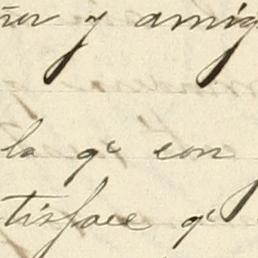 y amig
la qe con
tisface qe